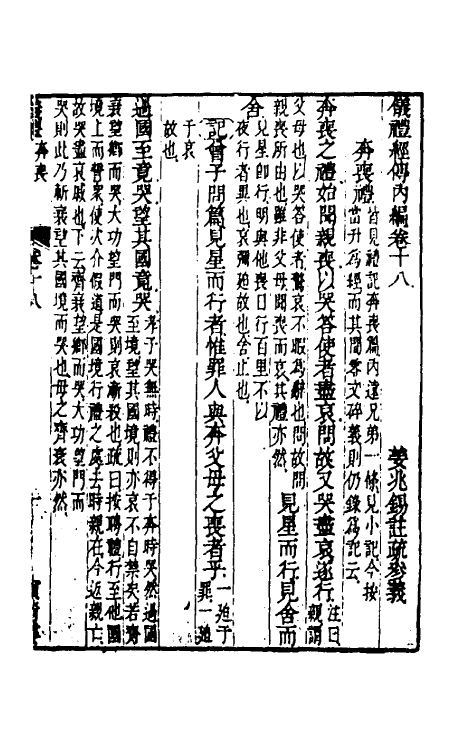 儀禮經傳內編卷十八
姜兆錫註疏參義
奔喪禮
皆見禮記奔喪篇內遠兄弟一條見小記今按
當升為經而其間零文碎義則仍錄為記云
奔喪之禮始聞親喪以哭答使者盡哀問故又哭盡哀遂行
註曰親謂
父母也以哭答使者驚哀不暇為辭也問故問
親喪所由也雖非父母聞喪而哀其禮亦然
見星而行見舍而
舍
見星卽行明與他喪日行百里不以
夜行者異也哀彌廹故也舍止也
記曾子問篇見星而行者惟罪人與奔父母之喪者乎
一廹于罪一廹
于哀
故也
過國至竟哭望其國竟哭
孝子哭無時禮不得于奔時哭然過國
至境望其國境則亦哀不自禁矣若齊
衰望鄉而哭大功望門而哭則哀漸殺也疏曰按聘禮行至他國
境上而誓眾使次介假道是國境行禮之處去時親在今近親亡
故哭盡哀戚也下云齊衰望鄉而哭大功望門而
哭則此乃斬衰望其國境而哭也母之齊衰亦然
奔喪
卷十八